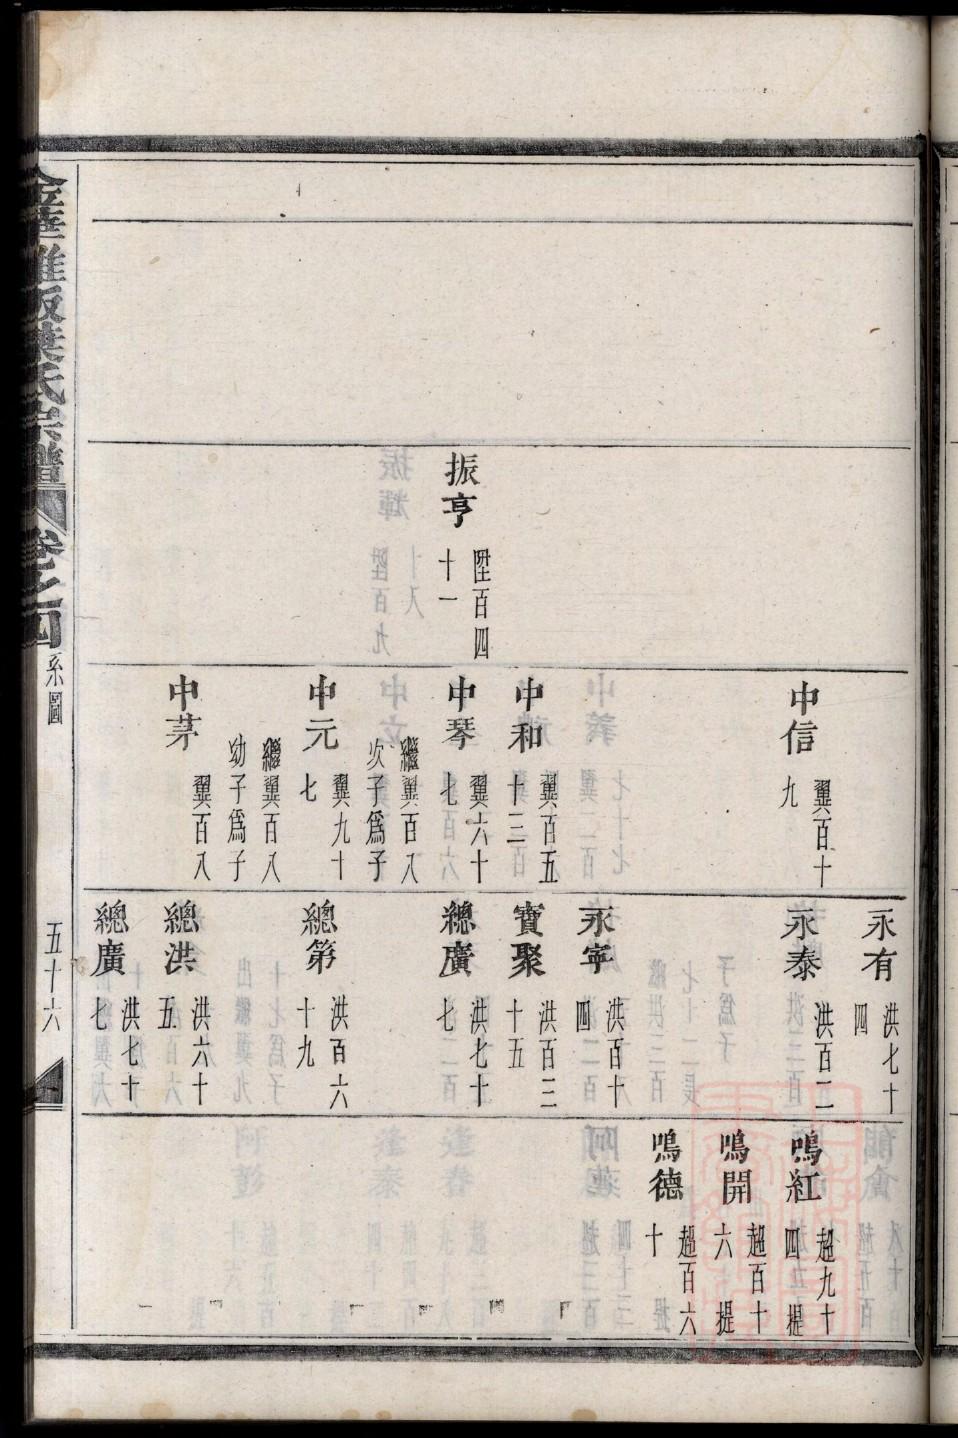 振亨
陞百四
十一
中信
翼百十
九
中和
翼百五
十三
中琴
翼六十
七
繼翼百八
次子爲子
中元
翼九十
七
繼翼百八
幼子爲子
中茅
翼百八
永有
洪七十
四
永泰
洪百二
永寧
洪百十
四
寶聚
洪百三
十五
總廣
洪七十
七
總第
洪百六
十九
總洪
洪六十
五
總廣
洪七十
七
鳴紅
超九十
四 提
鳴開
超百十
六 提
鳴德
超百六
十 提
葉氏宗譜
卷之四
系圖
五十六